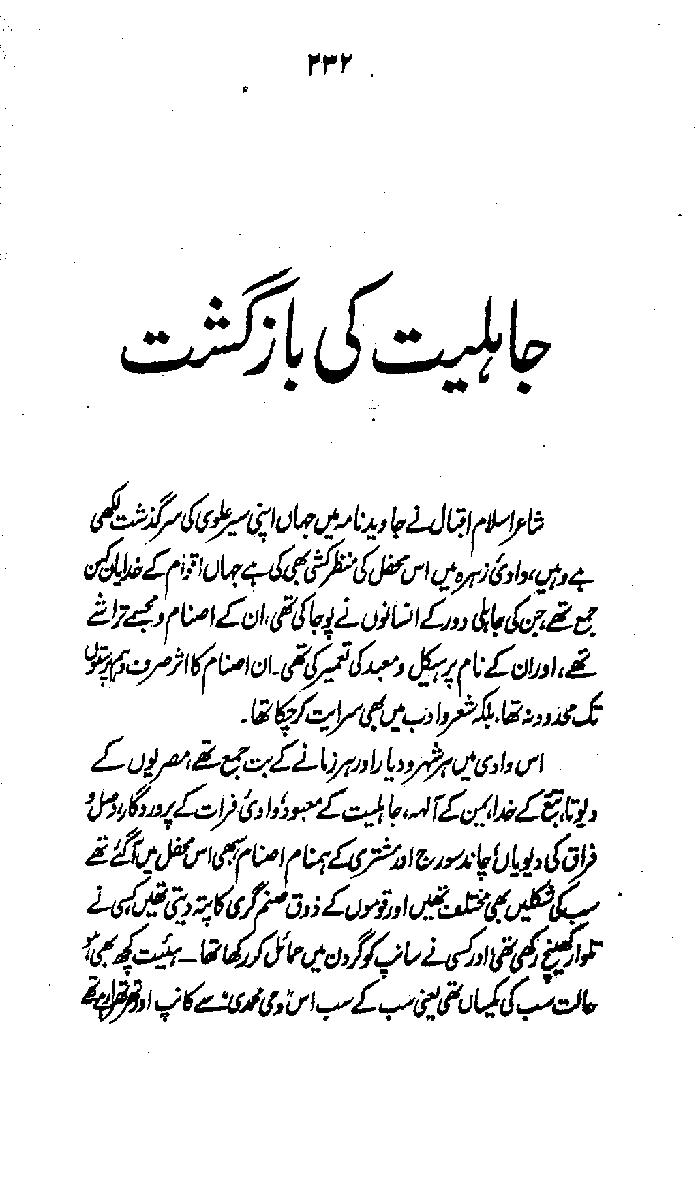 ۲۳۲
جاہلیت کی بازگشت
شاعر اسلام اقبال نے جاوید نامہ میں جہاں اپنی سیر علوی کی سرگذشت لکھی
ہے وہیں، وادیٔ زہرہ میں اس محفل کی منظر کشی بھی کی ہے جہاں اقوام کے خدایان کہن
جمع تھے، جن کی جاہلی دور کے انسانوں نے پوجا کی تھی، ان کے اصنام و مجسمے تراشے
تھے، اور ان کے نام پر ہیکل و معبد کی تعمیر کی تھی۔ ان اصنام کا اثر صرف وہم پرستوں
تک محدود نہ تھا، بلکہ شعر و ادب میں بھی سرایت کر چکا تھا۔
اس وادی میں ہر شہر و دیار اور ہر زمانے کے بت جمع تھے، مصریوں کے
دیوتا، تبع کے خدا، یمن کے آلہہ، جاہلیت کے معبود، وادیٔ فرات کے پروردگار، وصل و
فراق کی دیویاں، چاند سورج اور مشتری کے ہمنام اصنام سبھی اس محفل میں آگئے تھے
سب کی شکلیں بھی مختلف تھیں اور قوموں کے ذوق صنم گری کا پتہ دیتی تھیں، کسی نے
تلوار کھینچ رکھی تھی اور کسی نے سانپ کو گردن میں حمائل کر رکھا تھا۔ ہیئت کچھ بھی ہو
حالت سب کی یکساں تھی یعنی سب کے سب اس "وحی محمدی" سے کانپ اور تھرتھرا رہے تھے